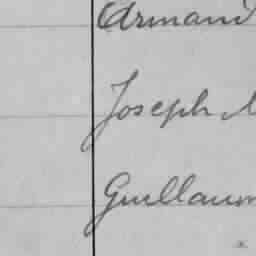 Armand
Joseph
Guillaum